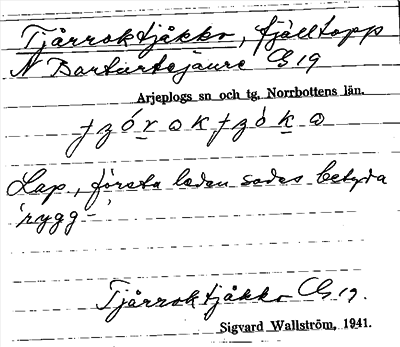 Tjårroktjåkko, fjälltopp
N Bartaurtejaure C19
Arjeplogs sn och tg, Norrbottens län.
Lap., första leden sades betyda
'rygg-'
Tjårroktjåkko C19.
Sigvard Wallström, 1941.